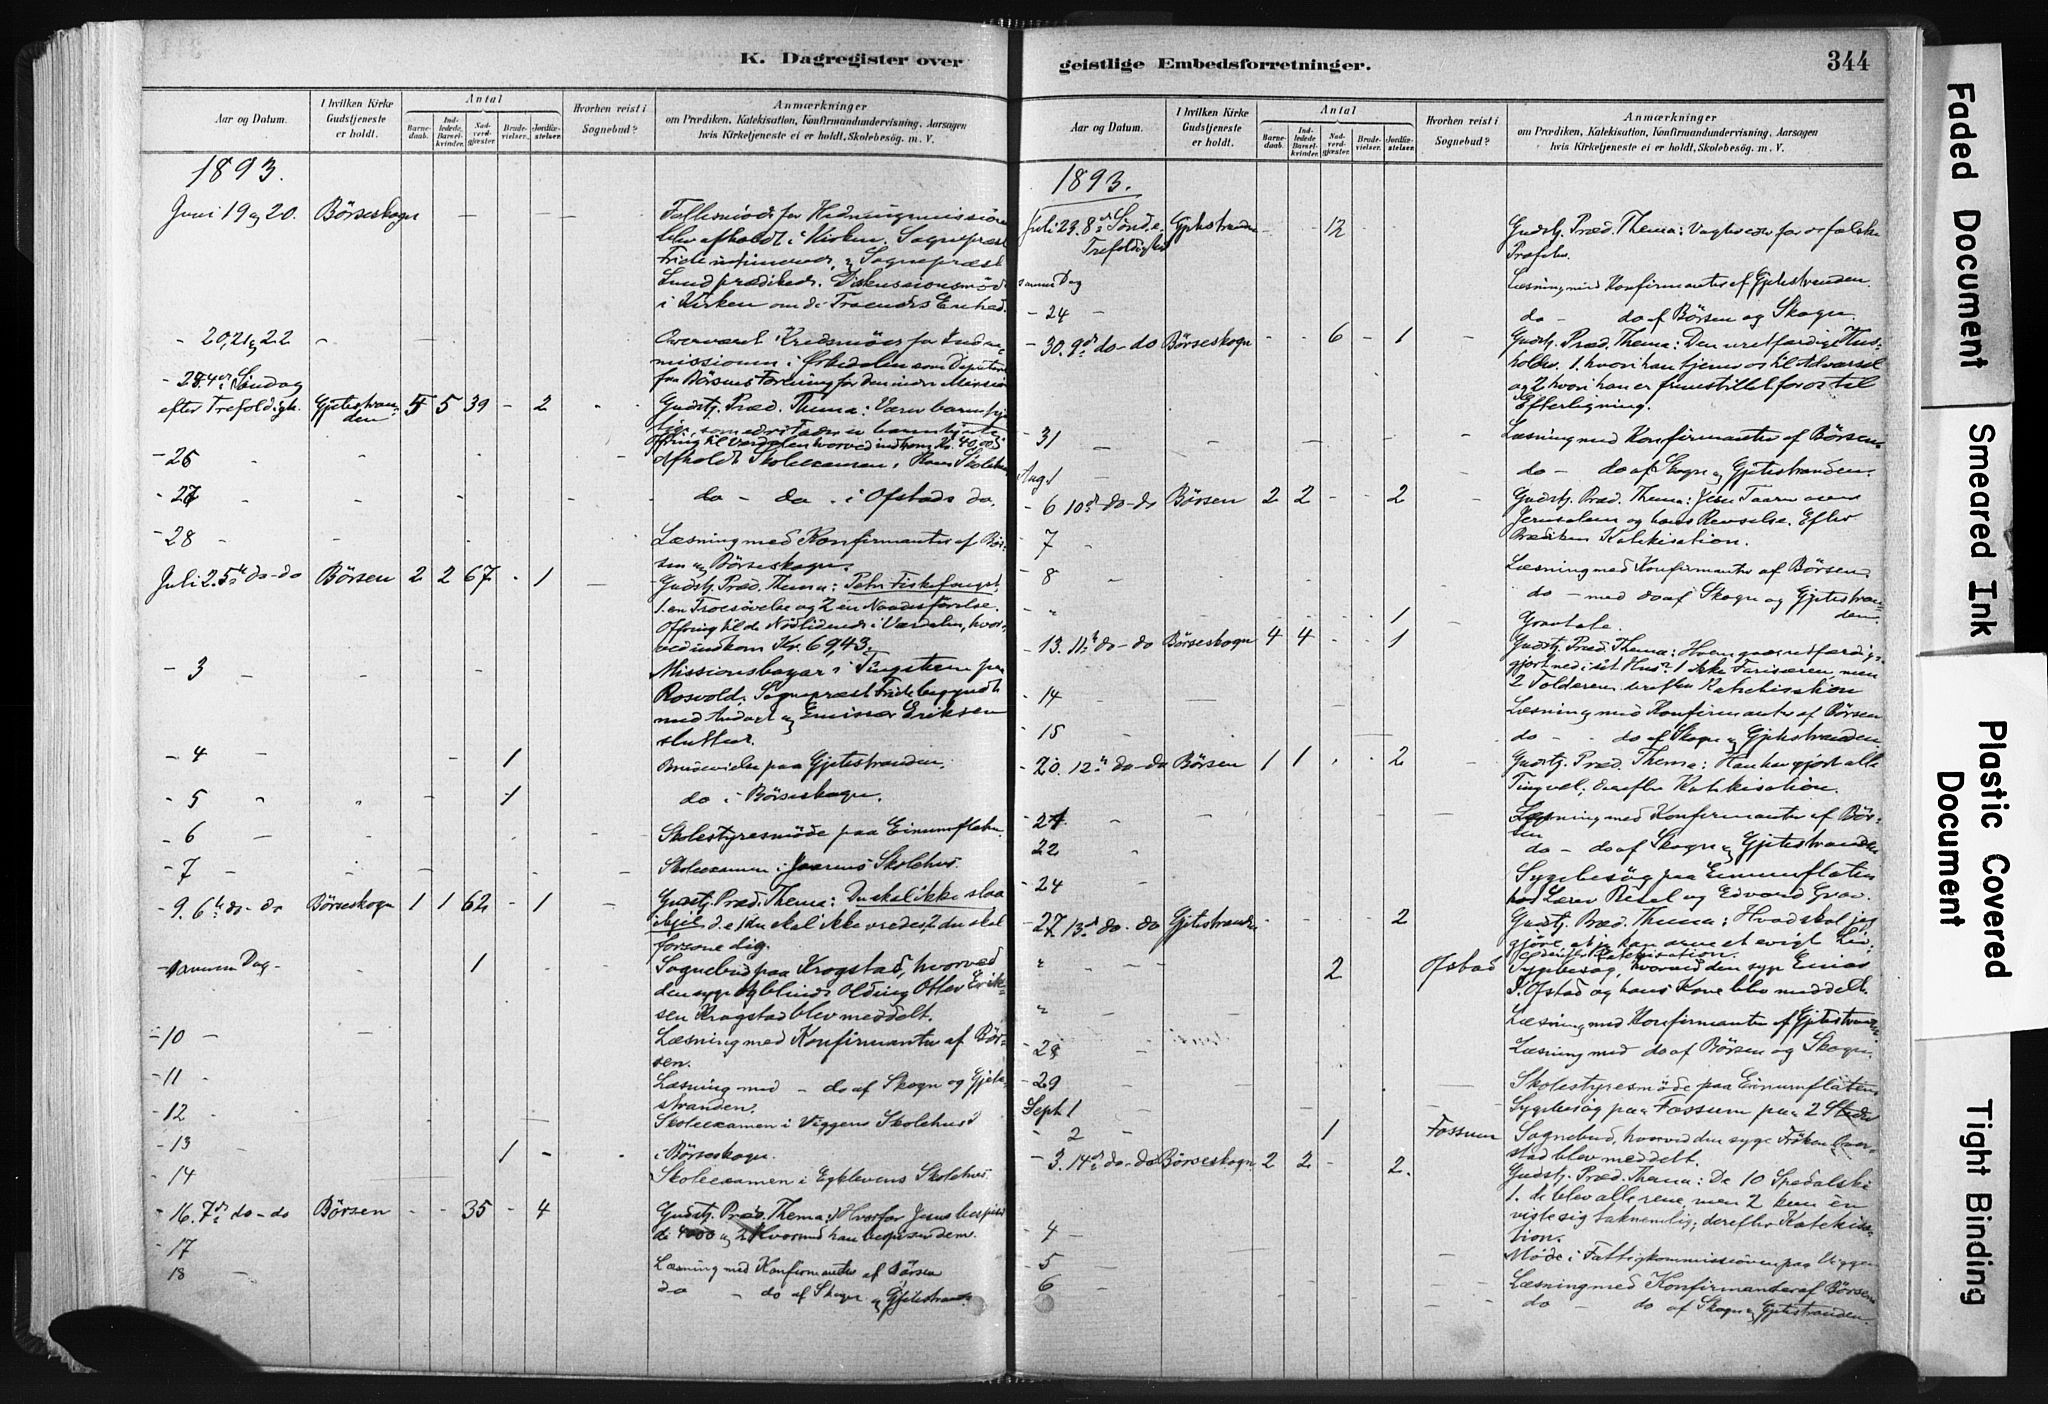 K. Dagregister over
Aar og Datum.
I hvilken Kirke Gudstjeneste er holdt.
Antal
Barne-daab.
Ind-ledede Barsel-kvinder.
Nad-verd-gjæster.
Brude-vielser.
Jordfæ-stelser.
Hvorhen reist i Sognebud?
Anmærkninger
om Prædiken, Katekisation, Konfirmandundervisning, Aarsagen
hvis Kirketjeneste ei er holdt, Skolebesøg. m. V.
1893.
Juni 19 og 20. Börseskogn
Fællesmöde for Hedningemissionen
blev afholdt i Kirken. Sognepræst
Sognepræst
Lund prædikede. Diskussionsmöde
i Kirken om de Troendes Enhed.
- 20, 21 og 22
Overværet Kredsmöde for Indre-
missionen i Orkedalen som Deputeret
fra Börsens Forening for den indre Mission
- 25. 4de Söndag
efter Trefoldigh. Gjetestran-den 5 5 39 - 2
Gudstj. Præd. Thema: Værer barmhjer-
tige, som eders Fader er barmhjertig
Ofring til Værdalen hvorved indkom Kr. 40,00
- 26
Afholdt Skoleexamen i Rams Skolehus
- 27
do - do - i Ofstads do.
- 28
Læsning med Konfirmanter af Bör-
sen og Börseskogn.
Juli 2. 5te do - do Börsen 2 2 67 - 1
Gudstj. Præd. Thema: Peders Fiskefangst,
1. en Troesövelse og 2 en Naadesförelse.
Offring til de Nödlidende i Værdalen, hvor-
ved indkom Kr. 69,43.
- 3
Missionsbazar i Tingstuen paa
Rosvold. Sognepræst Fride begyndte
med Andagt og Emissær Eriksen
sluttede.
- 4 1
Brudevielse paa Gjetestranden.
- 5 1
do i Börseskogn.
- 6
Skolestyresmöde paa Einumflaten.
- 7
Skoleexamen i Jaarens Skolehus.
- 9. 6te do - do Börseskogn 1 1 62 - 1
Gudstj. Præd. Thema: Du skal ikke slaa
ihjel d.e. 1 du skal ikke vredes, 2 du skal
forsone dig.
- samme Dag - 1
Sognebud paa Krogstad, hvorved
den syge og blinde Olding Otter Erik-
sen Krogstad blev meddelt.
- 10
Læsning med Konfirmanter af Bör-
sen.
- 11
Læsning med - do af Skogn og Gjete-
stranden.
- 12
Skoleexamen i Viggens Skolehus
- 13 1
i Börseskogn.
- 14
Skoleexamen i Eggklevens Skolehus.
- 16. 7de do - do Börsen - - 35 - 4
Gudstj. Præd. Thema: 1 Hvorfor Jesus bespiste
de 4000 og 2 Hvormed han bespiser dem.
- 17
Læsning med Konfirmanter af Börsen
18
do - do af Skogn og Gjetestranden.
geistlige Embedsforretninger.
344
Aar og Datum.
I hvilken Kirke Gudstjeneste er holdt.
Antal
Barne-daab.
Ind-ledede Barsel-kvinder.
Nad-verd-gjæster.
Brude-vielser.
Jordfæ-stelser.
Hvorhen reist i Sognebud?
Anmærkninger
om Prædiken, Katekisation, Konfirmandundervisning, Aarsagen
hvis Kirketjeneste ei er holdt, Skolebesög. m. V.
1893.
Juli 23. 8de Sönd. e. Trefoldighed Gjetestranden - - 12
Gudstj. Præd. Thema: Vogter eder for de falske
Profeter.
samme Dag
Læsning med Konfirmanter af Gjetestranden.
- 24 -
do - do af Börsen og Skogn.
- 30. 9de do - do Börseskogn - - 6 - 1
Gudstj. Præd. Thema: Den uretfærdige Hus-
holder. 1. hvori han tjener os til Advarsel
og 2 hvori han er fremstillet for os til
Efterligning.
- 31
Læsning med Konfirmanter af Börsen.
Aug. 1
do - do af Skogn og Gjetestranden.
- 6 10de do - do Börsen 2 2 - - 2
Gudstj. Præd. Thema: Jesu Taarer over
Jerusalem og hans Revselse. Efter
Prædiken Katekisation.
- 7
Læsning med Konfirmanter af Börsen.
- 8
do - med do af Skogn og Gjetestran-
den.
" 1
Gravtale.
- 13. 11te do - do Börseskogn 4 4 1
Gudstj. Præd. Thema: Hvem gaar retfærdig-
gjort ned i sit Hus? 1 ikke Farisæeren, men
2 Tolderen, derefter Katekisation
- 14
Læsning med Konfirmanter af Börsen
- 15
do - do af Skogn og Gjetestranden
- 20. 12te do - do Börsen 1 1 - - 2
Gudstj. Præd. Thema: Han har gjort alle
Ting vel; derefter Katekisation.
- 21
Læsning med Konfirmanter af Bör-
sen
- 22
do - do af Skogn og Gjetestranden
- 24
Sygebesög paa Einumflaten
hos Lærer Resel og Edvard Grav.
- 27 13de do - do Gjetestranden 2
Gudstj. Præd. Thema: Hvad skal jeg
gjöre, at jeg kan arve et evigt Liv,
derefter Katekisation.
" 2 Ofstad
Sygebesög, hvorved den syge
Ofstad og hans Kone blev meddelt.
"
Læsning med Konfirmanter af Gjetestranden
- 28
Læsning med do af Börsen og Skogn.
- 29
Skolestyresmöde paa Einumflaten
Sept. 1
Sygebesög paa Fossum paa 2 Steder
- 2 1 Fossum
Sognebud, hvorved den syge Fröken
stad blev meddelt.
- 3. 14de do - do Börseskogn 2 2 - 2.
Gudstj. Præd. Thema: De 10 Spedalske
1. de blev alle rene, men 2 kun én
viste sig taknemlig; derefter Katekisa-
tion.
- 4 -
Möde i Fattigkommissionen paa Viggen
- 5
Læsning med Konfirmanter af Börsen
6
do - do af Skogn og Gjetestranden.
Faded Document
Smeared Ink
Plastic Covered Document
Tight Binding